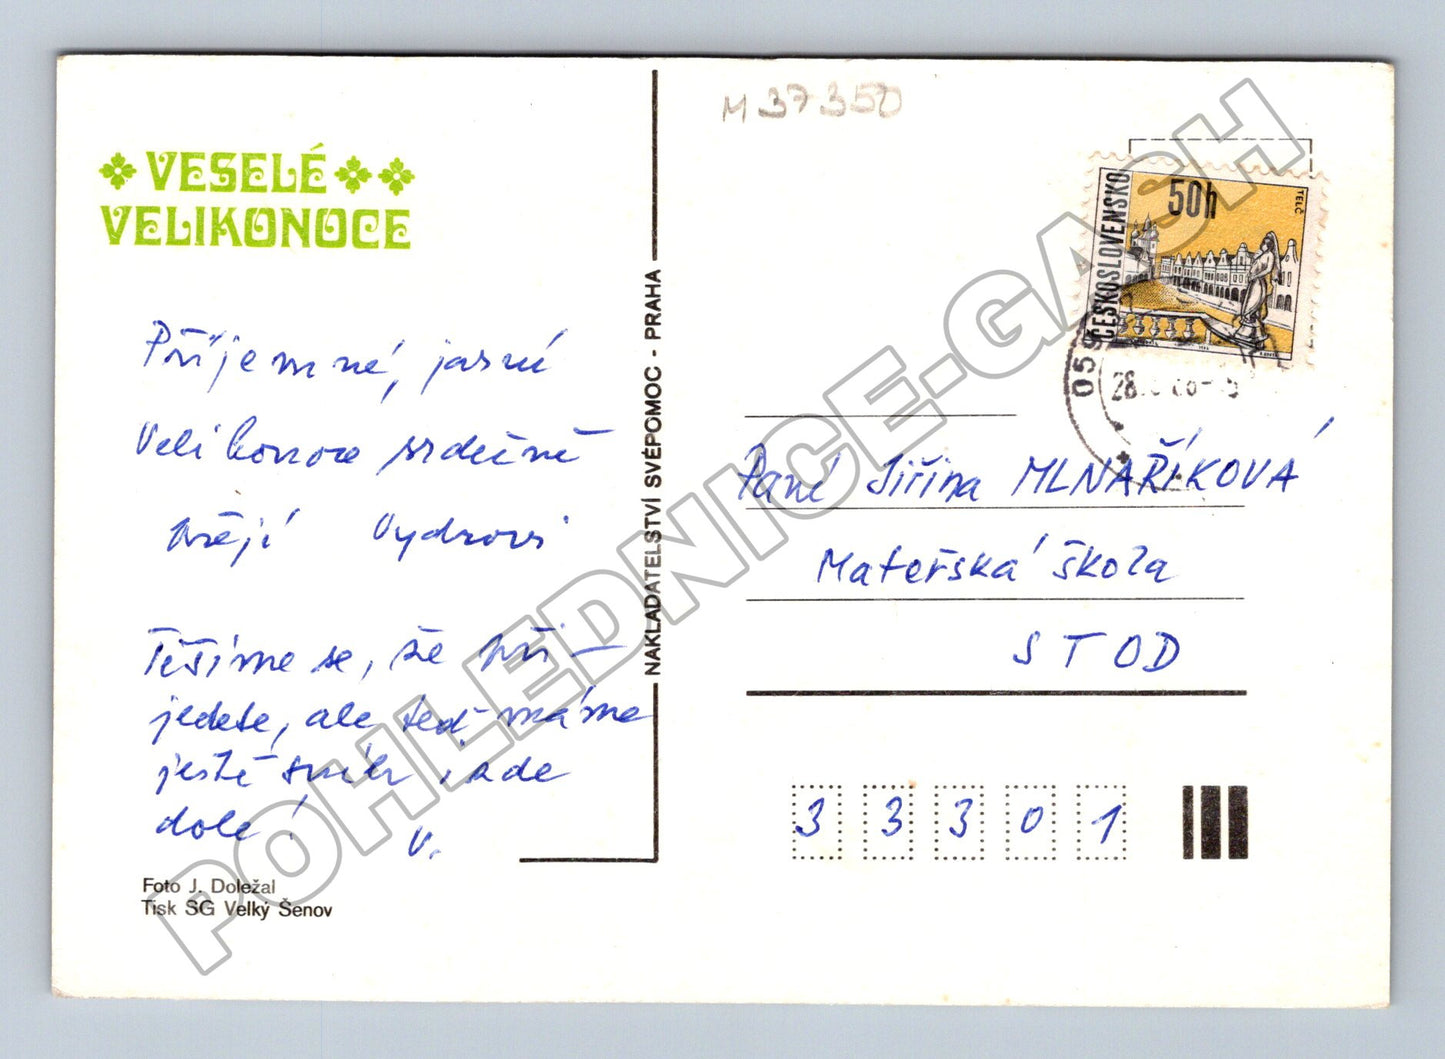 M 37350
VESELÉ
VELIKONOCE
Příjemné, jasné
Velikonoce srdečně
přejí Vydrovi
Těšíme se, že při-
jedete, ale teď máme
ještě sníh, a de
dole! V.
Foto J. Doležal
Tisk SG Velký Šenov
NAKLADATELSTVÍ SVÉPOMOC - PRAHA
ČESKOSLOVENSKO
50h
TELČ
059
28.
Paní Jiřina MLNAŘÍKOVÁ
Mateřská škola
STOD
3 3 3 0 1
POHLEDNICE-GASH